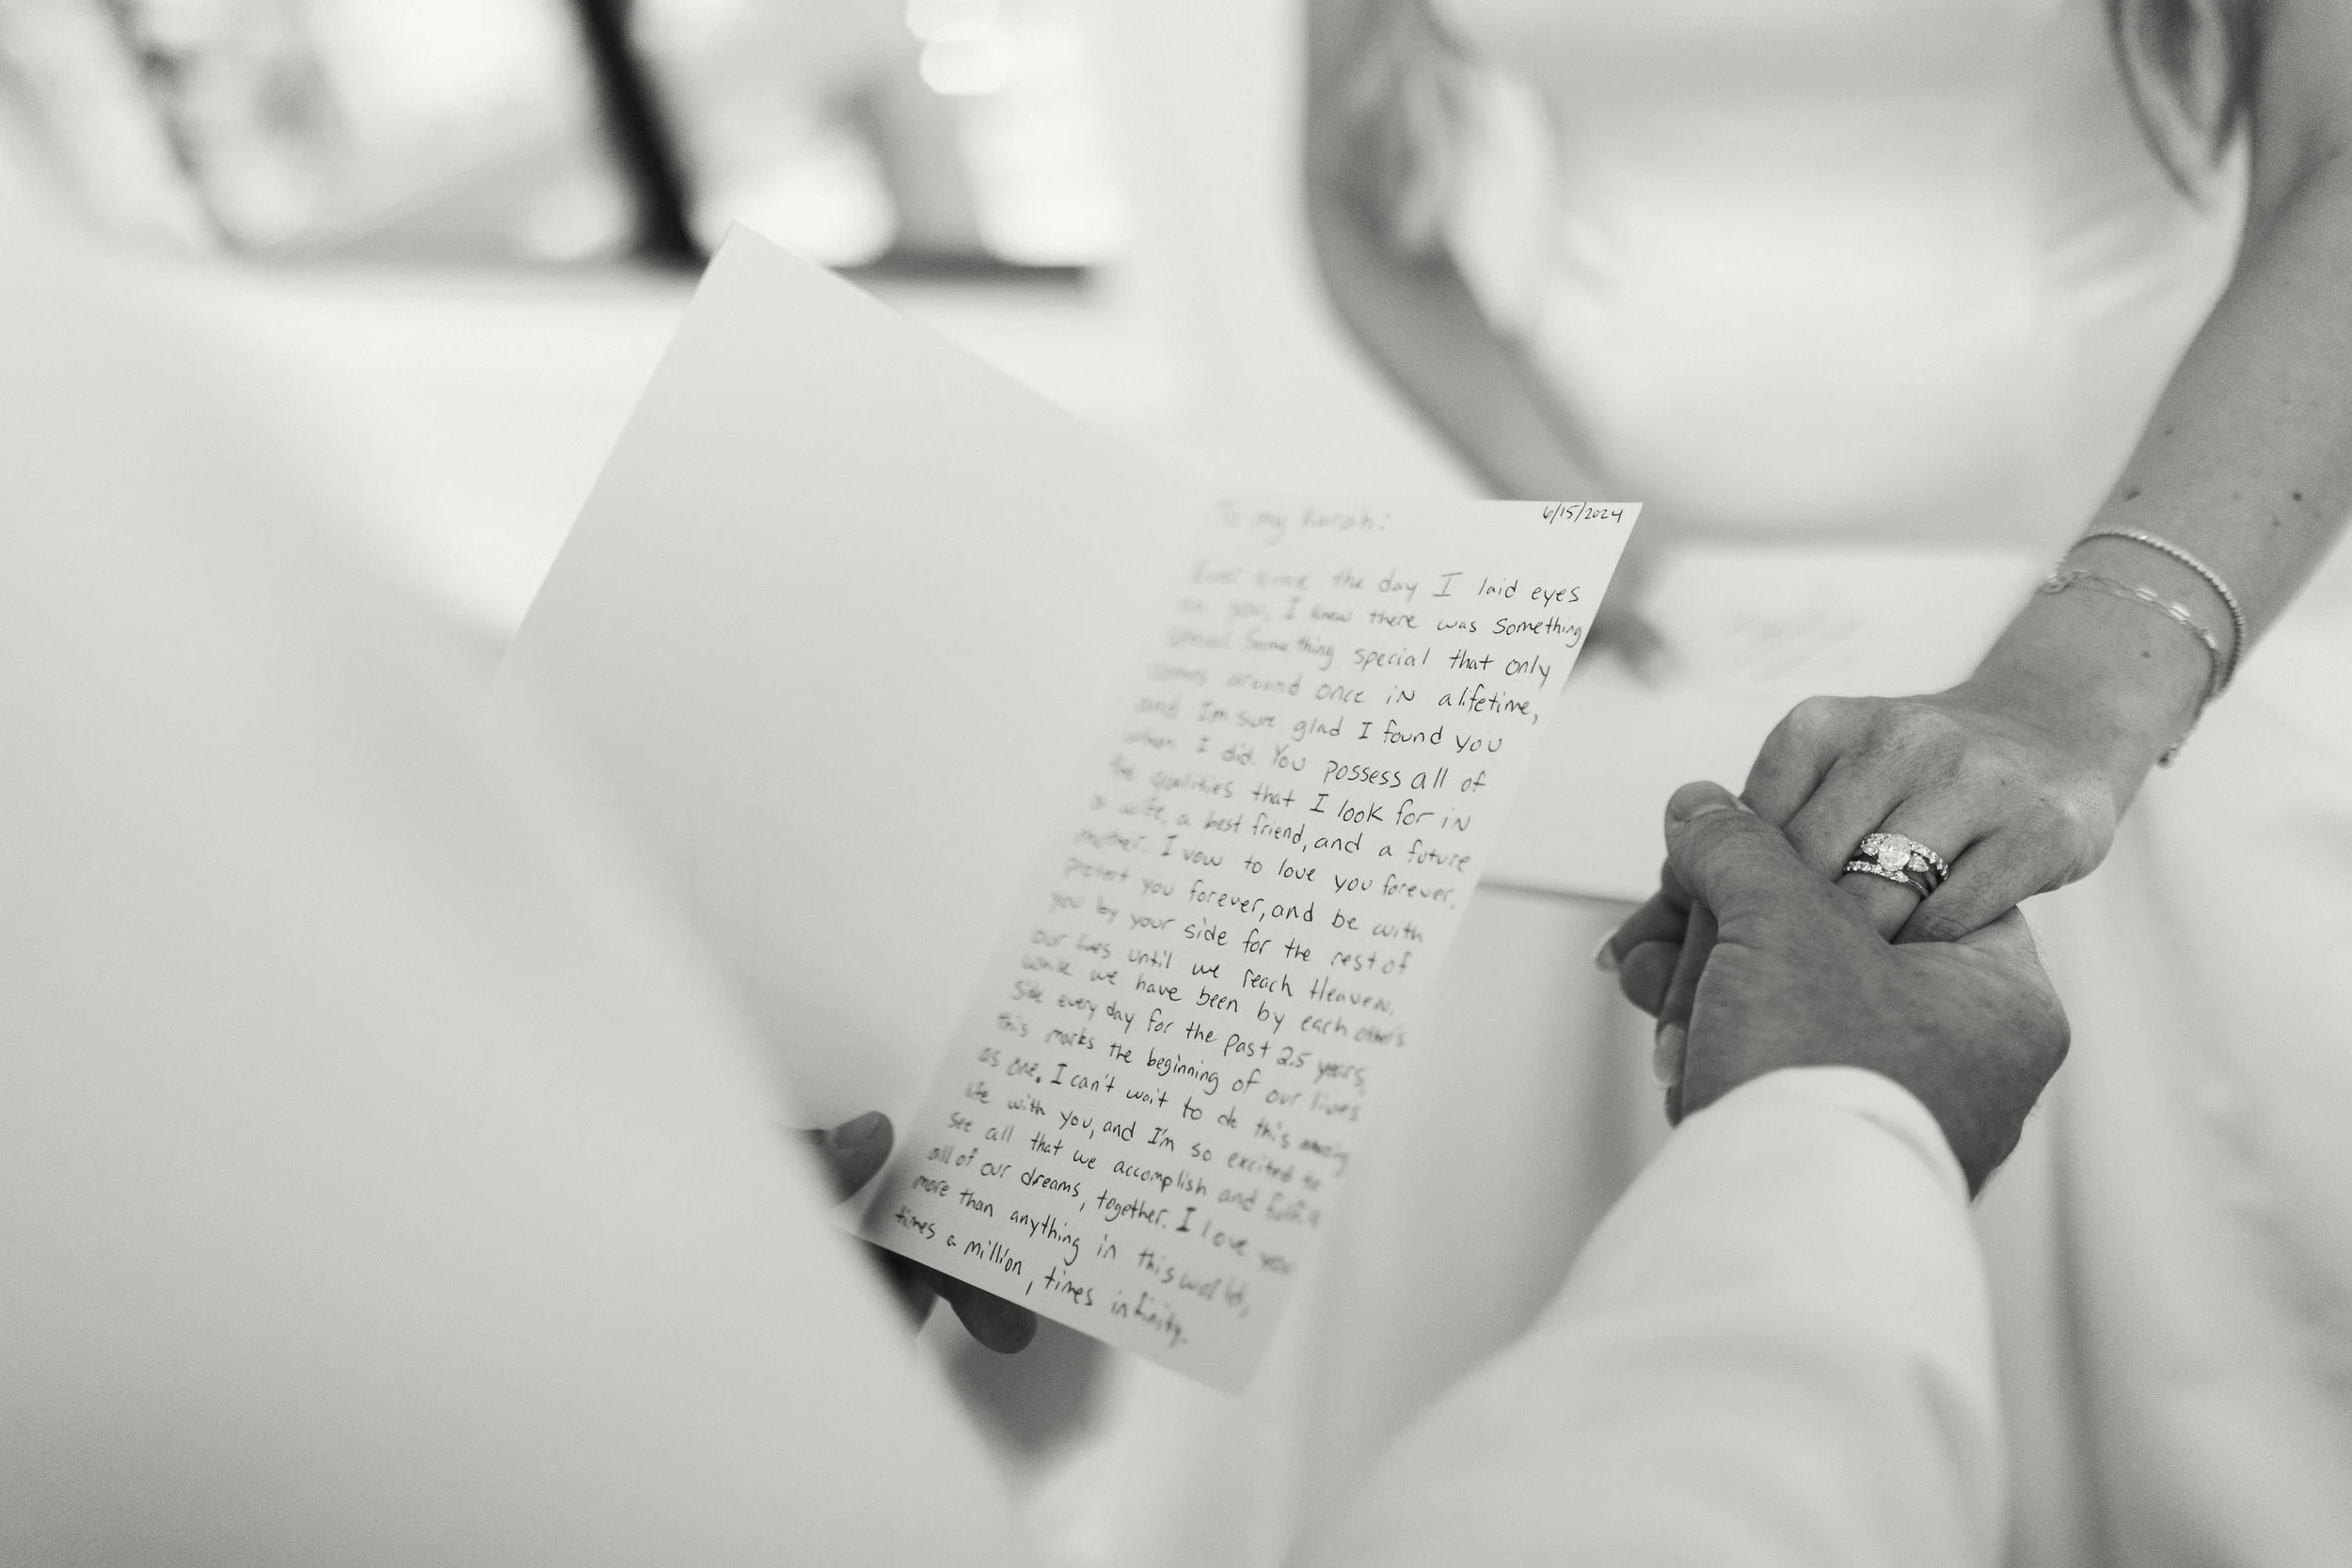 6/15/2024
To my
Ever since the day I laid eyes
on you, I knew there was something
special. Something special that only
comes around once in a lifetime,
and I'm sure glad I found you
when I did. You possess all of
the qualities that I look for in
a wife, a best friend, and a future
mother. I vow to love you forever,
protect you forever, and be with
you by your side for the rest of
our lives until we reach Heaven.
While we have been by each other's
side every day for the past 2.5 years,
this marks the beginning of our lives
as one. I can't wait to do this amazing
life with you, and I'm so excited to
see all that we accomplish and fulfill
all of our dreams, together. I love you
more than anything in this world,
times a million, times infinity.